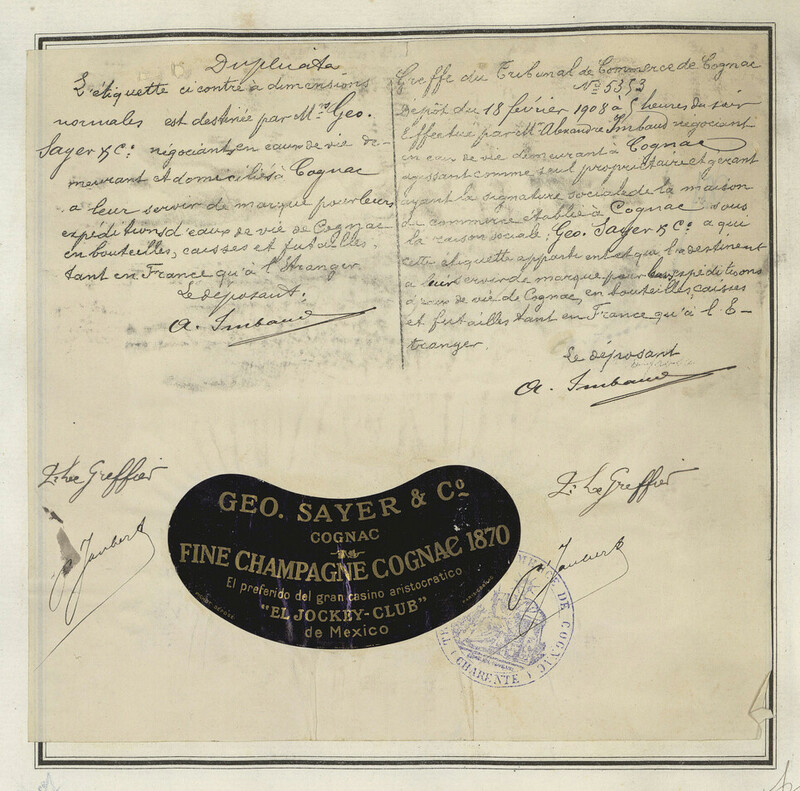 Duplicata
L'étiquette ci contre à dimensions
normales est destinée par Mrs Geo.
Sayer & Co. négociants en eaux de vie de-
meurant et domiciliés à Cognac
a leur servir de marque pour leurs
expéditions d'eaux de vie de Cognac
en bouteilles, caisses et futailles
tant en France qu'à l'Etranger.
Le déposant.
A. Imbaud
Greffe du Tribunal de Commerce de Cognac
No 5353
Dépôt du 18 février 1908 à 5 heures du soir
Effectué par Mr Alexandre Imbaud négociant
en eaux de vie demeurant à Cognac
agissant comme seul propriétaire et gérant
ayant la signature sociale de la maison
de commerce établie à Cognac sous
la raison sociale: Geo. Sayer & Co. a qui
cette étiquette appartient et qui la destinent
a leur servir de marque pour leurs expéditions
d'eaux de vie de Cognac, en bouteilles, caisses
et futailles tant en France qu'à l'E-
tranger.
Le déposant
A. Imbaud
Le Greffier
Jaubert
Le Greffier
Jaubert
GEO. SAYER & Co
COGNAC
FINE CHAMPAGNE COGNAC 1870
El preferido del gran casino aristocratico
"EL JOCKEY-CLUB"
de Mexico
COMMERCE DE COGNAC
(CHARENTE)